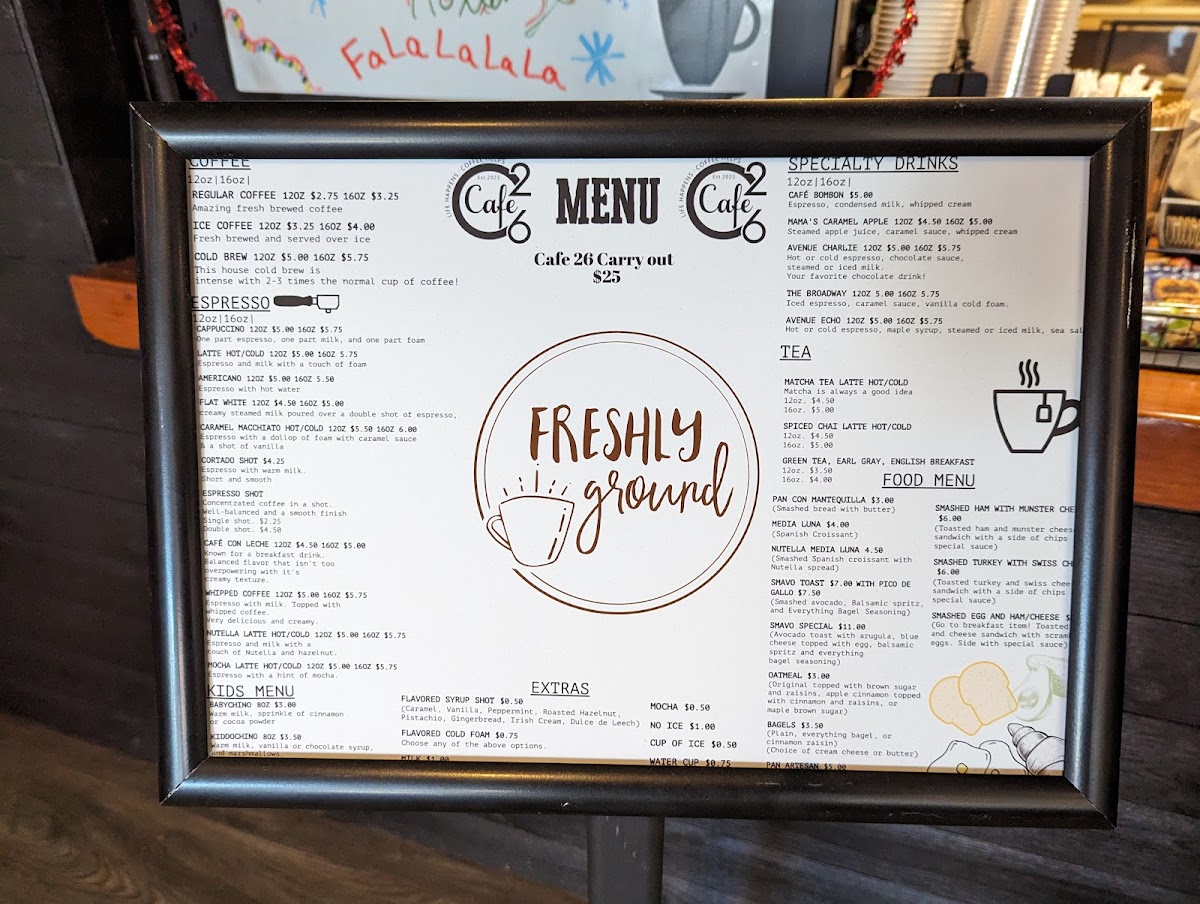 FaLaLaLaLa
COFFEE
12oz|16oz|
REGULAR COFFEE 12OZ $2.75 16OZ $3.25
Amazing fresh brewed coffee
ICE COFFEE 12OZ $3.25 16OZ $4.00
Fresh brewed and served over ice
COLD BREW 12OZ $5.00 16OZ $5.75
This house cold brew is
intense with 2-3 times the normal cup of coffee!
ESPRESSO
12oz|16oz|
CAPPUCCINO 12OZ $5.00 16OZ $5.75
One part espresso, one part milk, and one part foam
LATTE HOT/COLD 12OZ $5.00 16OZ 5.75
Espresso and milk with a touch of foam
AMERICANO 12OZ $5.00 16OZ 5.50
Espresso with hot water
FLAT WHITE 12OZ $4.50 16OZ $5.00
creamy steamed milk poured over a double shot of espresso,
CARAMEL MACCHIATO HOT/COLD 12OZ $5.50 16OZ 6.00
Espresso with a dollop of foam with caramel sauce
& a shot of vanilla
CORTADO SHOT $4.25
Espresso with warm milk.
Short and smooth
ESPRESSO SHOT
Concentrated coffee in a shot.
Well-balanced and a smooth finish
Single shot. $2.25
Double shot. $4.50
CAFÉ CON LECHE 12OZ $4.50 16OZ $5.00
Known for a breakfast drink.
Balanced flavor that isn't too
overpowering with it's
creamy texture.
WHIPPED COFFEE 12OZ $5.00 16OZ $5.75
Espresso with milk. Topped with
whipped coffee.
Very delicious and creamy.
NUTELLA LATTE HOT/COLD 12OZ $5.00 16OZ $5.75
Espresso and milk with a
touch of Nutella and hazelnut.
MOCHA LATTE HOT/COLD 12OZ $5.00 16OZ $5.75
Espresso with a hint of mocha.
KIDS MENU
BABYCHINO 8OZ $3.00
Warm milk, sprinkle of cinnamon
or cocoa powder
KIDDOCHINO 8OZ $3.50
Warm milk, vanilla or chocolate syrup,
and marshmallows
LIFE HAPPENS · COFFEE HELPS
Est.2023
Cafe 26
MENU
LIFE HAPPENS · COFFEE HELPS
Est.2023
Cafe 26
Cafe 26 Carry out
$25
FRESHLY
ground
EXTRAS
FLAVORED SYRUP SHOT $0.50
(Caramel, Vanilla, Peppermint, Roasted Hazelnut,
Pistachio, Gingerbread, Irish Cream, Dulce de Leech)
FLAVORED COLD FOAM $0.75
Choose any of the above options.
MILK $1.00
MOCHA $0.50
NO ICE $1.00
CUP OF ICE $0.50
WATER CUP $0.75
SPECIALTY DRINKS
12oz|16oz|
CAFÉ BOMBON $5.00
Espresso, condensed milk, whipped cream
MAMA'S CARAMEL APPLE 12OZ $4.50 16OZ $5.00
Steamed apple juice, caramel sauce, whipped cream
AVENUE CHARLIE 12OZ $5.00 16OZ $5.75
Hot or cold espresso, chocolate sauce,
steamed or iced milk.
Your favorite chocolate drink!
THE BROADWAY 12OZ 5.00 16OZ 5.75
Iced espresso, caramel sauce, vanilla cold foam.
AVENUE ECHO 12OZ $5.00 16OZ $5.75
Hot or cold espresso, maple syrup, steamed or iced milk, sea sal
TEA
MATCHA TEA LATTE HOT/COLD
Matcha is always a good idea
12oz. $4.50
16oz. $5.00
SPICED CHAI LATTE HOT/COLD
12oz. $4.50
16oz. $5.00
GREEN TEA, EARL GRAY, ENGLISH BREAKFAST
12oz. $3.50
16oz. $4.00
FOOD MENU
PAN CON MANTEQUILLA $3.00
(Smashed bread with butter)
MEDIA LUNA $4.00
(Spanish Croissant)
NUTELLA MEDIA LUNA 4.50
(Smashed Spanish croissant with
Nutella spread)
SMAVO TOAST $7.00 WITH PICO DE
GALLO $7.50
(Smashed avocado, Balsamic spritz,
and Everything Bagel Seasoning)
SMAVO SPECIAL $11.00
(Avocado toast with arugula, blue
cheese topped with egg, balsamic
spritz and everything
bagel seasoning)
OATMEAL $3.00
(Original topped with brown sugar
and raisins, apple cinnamon topped
with cinnamon and raisins, or
maple brown sugar)
BAGELS $3.50
(Plain, everything bagel, or
cinnamon raisin)
(Choice of cream cheese or butter)
PAN ARTESAN $5.00
SMASHED HAM WITH MUNSTER CHE
$6.00
(Toasted ham and munster chees
sandwich with a side of chips
special sauce)
SMASHED TURKEY WITH SWISS CH
$6.00
(Toasted turkey and swiss chee
sandwich with a side of chips
special sauce)
SMASHED EGG AND HAM/CHEESE $
(Go to breakfast item! Toasted
and cheese sandwich with scram
eggs. Side with special sauce)